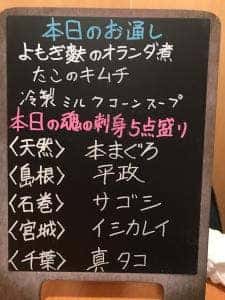 本日のお通し
よもぎ麩のオランダ煮
たこのキムチ
冷製ミルクコーンスープ
本日の魂の刺身5点盛り
〈天然〉 本まぐろ
〈島根〉 平政
〈石巻〉 サゴシ
〈宮城〉 イシカレイ
〈千葉〉 真タコ